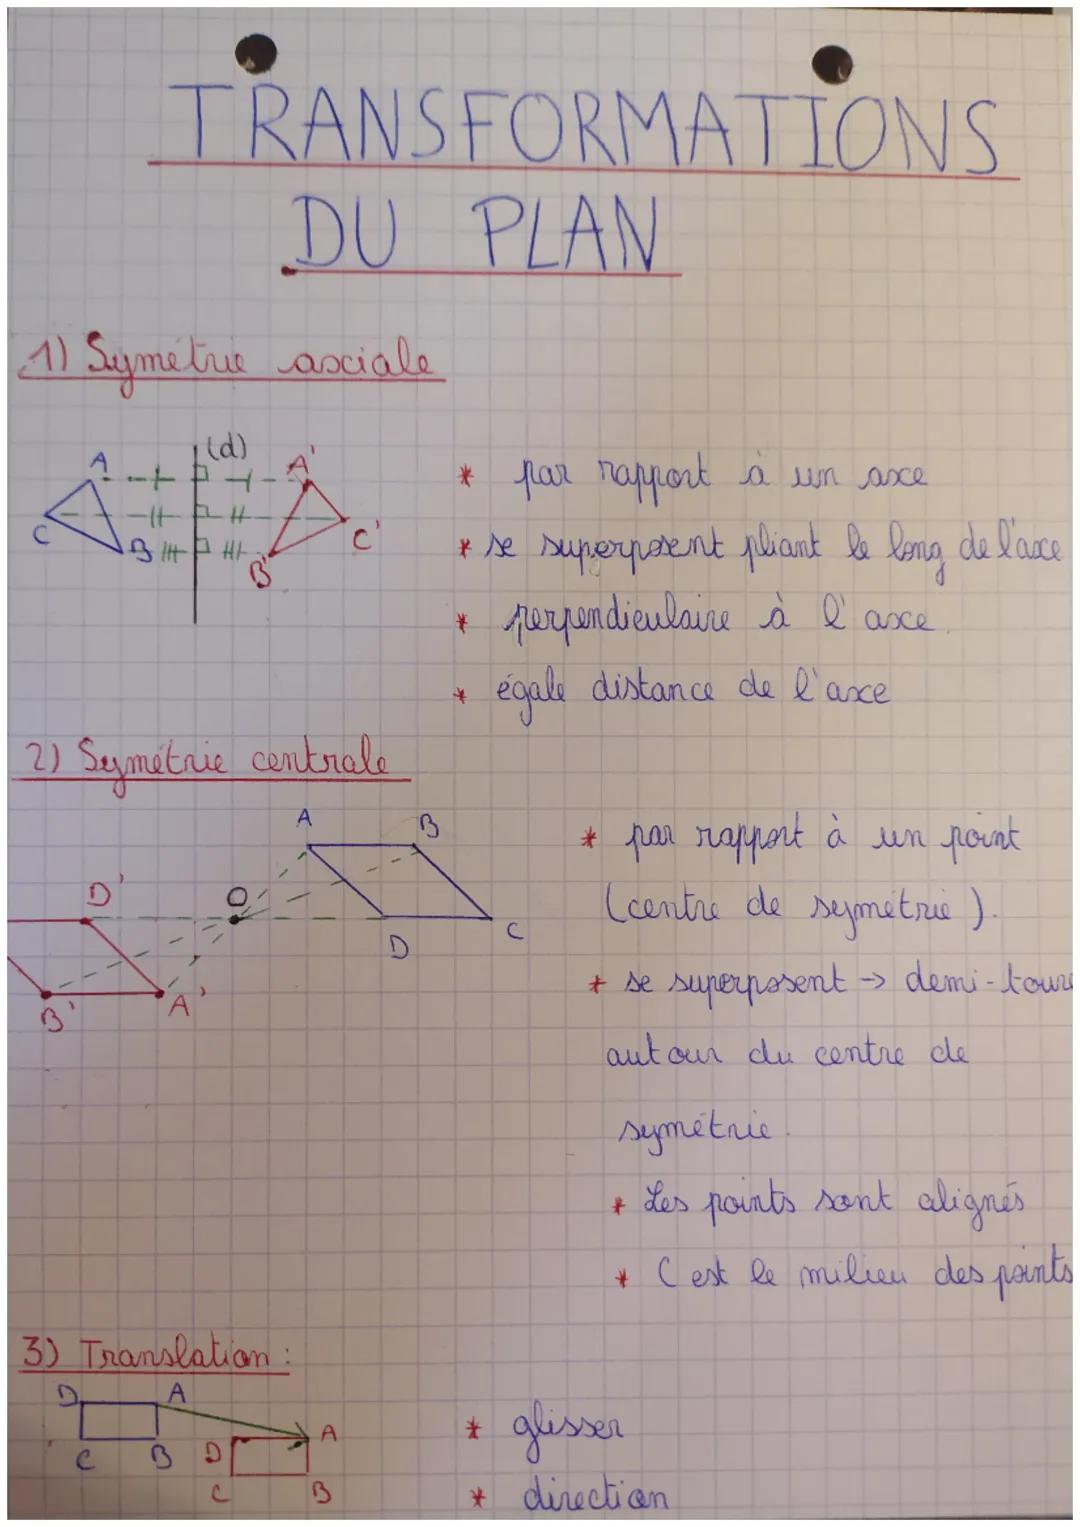 TRANSFORMATIONS
DU PLAN
1) Symétrie axciale
A (d) A'
C B B' C'
* par rapport à un axe
* se superposent pliant le long de l'axe
* perpendiculaire à l'axe.
* égale distance de l'axe
2) Symétrie centrale
A B
D' O
D C
B' A'
* par rapport à un point
(centre de symétrie).
* se superposent → demi-toure
autour du centre de
symétrie.
* Les points sont alignés
* C est le milieu des points
3) Translation :
D A
C B
D A
C B
* glisser
* direction